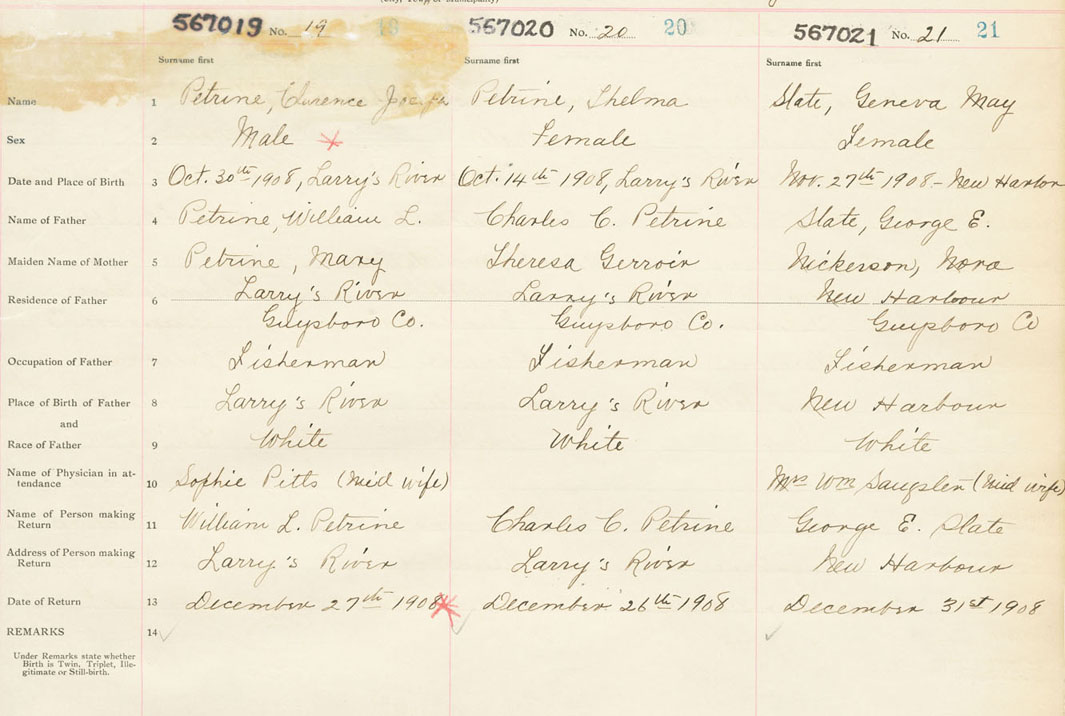 567019 No. 19 19 567020 No. 20 20 567021 No. 21 21
Surname first Surname first Surname first
Name 1 Petrine, Clarence Petrine, Thelma Slate, Geneva May
Sex 2 Male Female Female
Date and Place of Birth 3 Oct. 30th 1908, Larry's River Oct. 14th 1908, Larry's River Nov. 27th 1908 - New Harbor
Name of Father 4 Petrine, William L. Charles C. Petrine Slate, George E.
Maiden Name of Mother 5 Petrine, Mary Theresa Gerroir Nickerson, Nora
Residence of Father 6 Larry's River Larry's River New Harbour
Guysboro Co. Guysboro Co. Guysboro Co
Occupation of Father 7 Fisherman Fisherman Fisherman
Place of Birth of Father 8 Larry's River Larry's River New Harbour
and
Race of Father 9 White White White
Name of Physician in at-
tendance 10 Sophie Pitts (Mid wife) Mrs Wm (Mid wife)
Name of Person making
Return 11 William L. Petrine Charles C. Petrine George E. Slate
Address of Person making
Return 12 Larry's River Larry's River New Harbour
Date of Return 13 December 27th 1908 December 26th 1908 December 31st 1908
REMARKS 14
Under Remarks state whether
Birth is Twin, Triplet, Ille-
gitimate or Still-birth.